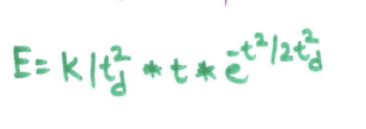 E = K/t_d^2 * t * e^{-t^2/2t_d^2}